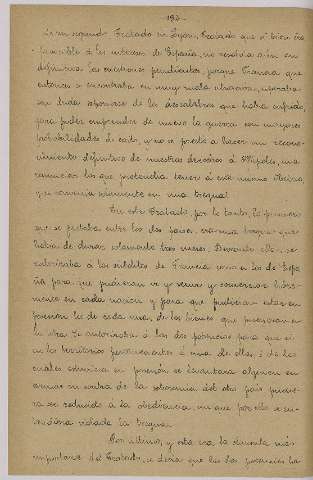 193
en un segundo Tratado en Lyon, Tratado que si bien era
favorable á los intereses de España, no resolvía aún en
definitiva las cuestiones pendientes, porque Francia que
entonces se encontraba en muy mala situación, esperaba
sin duda reponerse de los descalabros que había sufrido,
para poder emprender de nuevo la guerra con mayores
probabilidades de éxito, y no se prestó á hacer un recono-
cimiento definitivo de nuestros derechos á Nápoles, ni á
renunciar los que pretendía tener á este mismo
que convenía solamente en una tregua.
En este Tratado, por lo tanto, lo primero
que se pactaba entre los dos países era una tregua que
había de durar solamente tres meses. Durante ella se
autorizaba á los súbditos de Francia como á los de Espa-
ña para que pudieran ir y venir y comerciar libre-
mente en cada nación y para que pudieran estar en
posesión los de cada una, de los bienes que poseyeran en
la otra. Se autorizaba á las dos potencias para que si
en los territorios pertenecientes á una de ellas, ó de los
cuales estuviera en posesión, se levantara alguien en
armas en contra de la soberanía del otro país pudie-
ra ser reducido á la obediencia sin que por esto se en-
tendiera violada la tregua.
Por último, y esta era la cláusula más
importante del Tratado, se decía que las dos potencias ha-